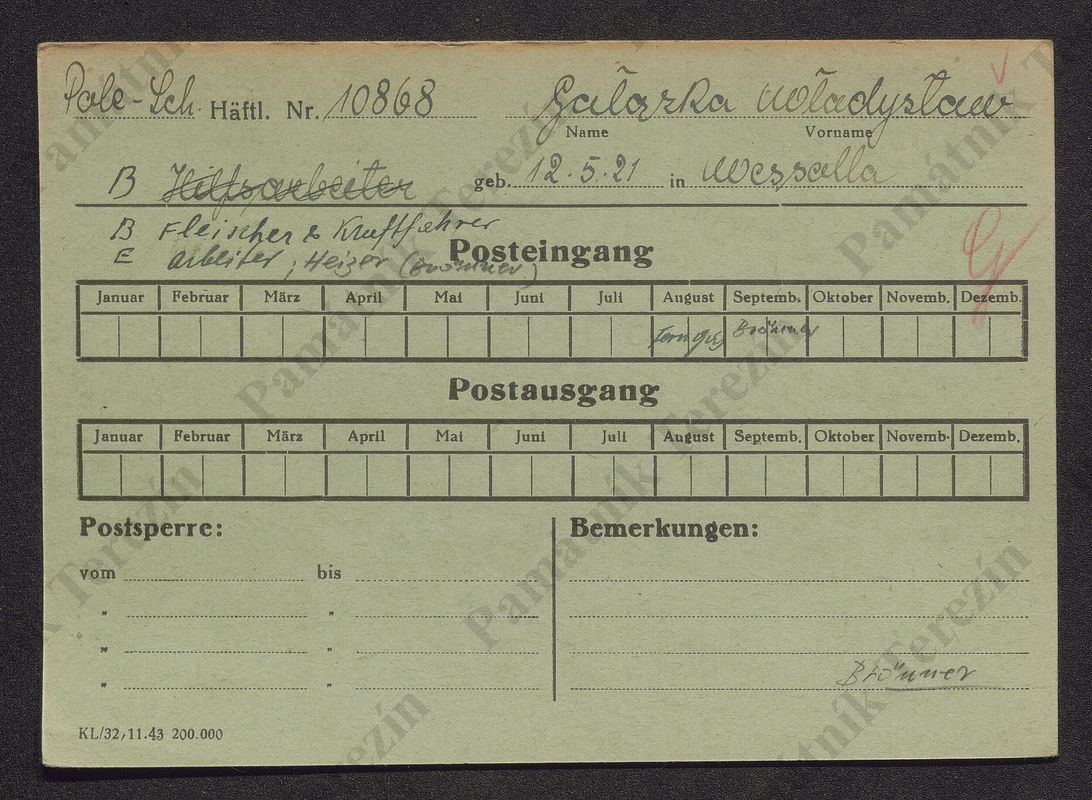 Pole-Sch. Häftl. Nr. 10868 Gałązka Władysław
Name Vorname
B Hilfsarbeiter geb. 12.5.21 in Wessolla
B Fleischer & Kraftfahrer
E Arbeiter, Heizer (Brönner)
Posteingang
Januar Februar März April Mai Juni Juli August Septemb. Oktober Novemb. Dezemb.
Brönner
Postausgang
Januar Februar März April Mai Juni Juli August Septemb. Oktober Novemb. Dezemb.
Postsperre: Bemerkungen:
vom bis
" "
" "
" "
Brönner
KL/32, 11.43 200.000
Památník Terezín